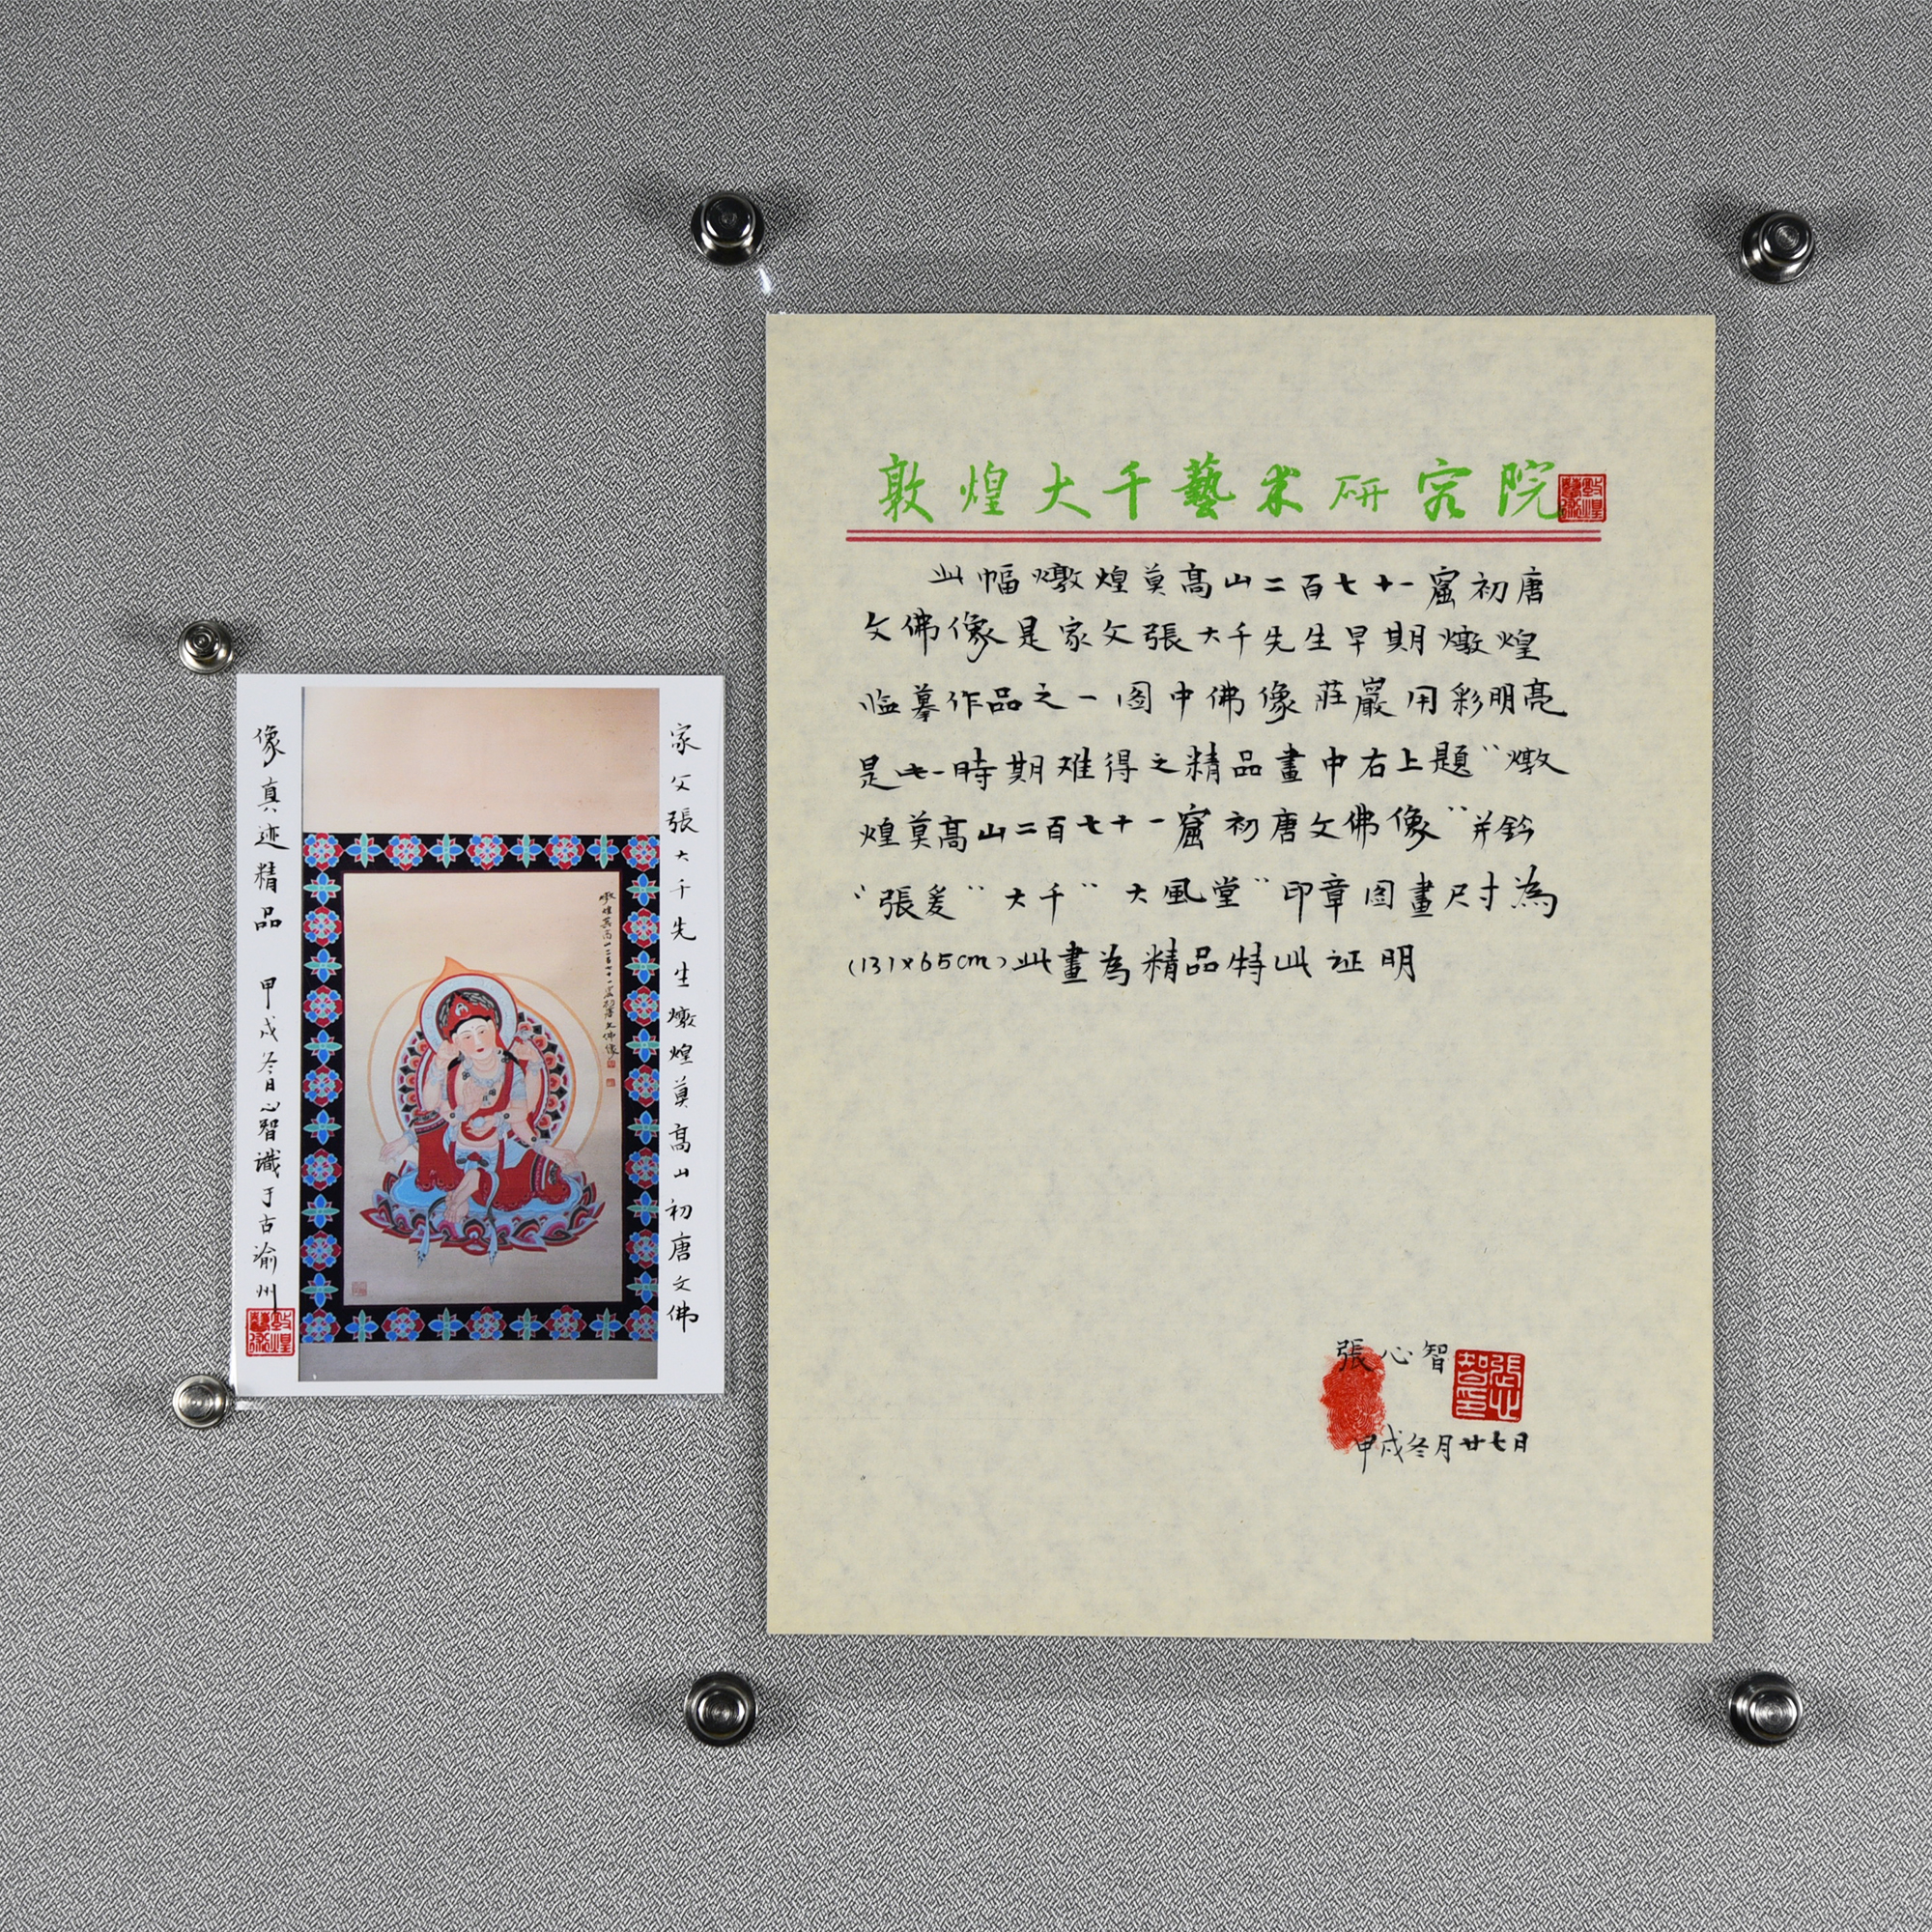 敦煌大千藝术研究院
敦煌藝術
此幅燉煌莫高山二百七十一窟初唐
文佛像是家父張大千先生早期燉煌
临摹作品之一图中佛像莊嚴用彩明亮
是此一時期难得之精品畫中右上題“燉
煌莫高山二百七十一窟初唐文佛像”并鈐
“張爰”“大千”“大風堂”印章图畫尺寸為
(131x65cm)此畫為精品特此证明
張心智
張心智印
甲戌冬月廿七日
家父張大千先生燉煌莫高山初唐文佛
像真迹精品 甲戌冬日心智識于古渝州
敦煌藝術
燉煌莫高山二百七十一窟初唐文佛像